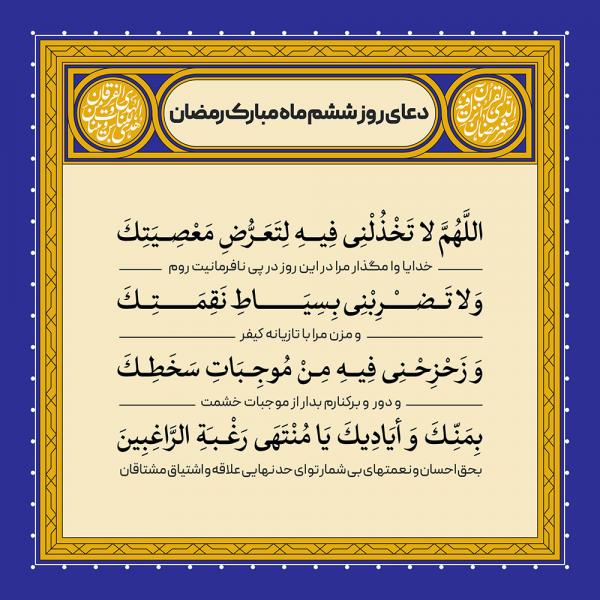 دعای روز ششم ماه مبارک رمضان
اللَّهُمَّ لا تَخْذُلْنِی فِیهِ لِتَعَرُّضِ مَعْصِیَتِكَ
خدایا وا مگذار مرا در این روز در پی نافرمانیت روم
وَلا تَضْرِبْنِی بِسِیَاطِ نَقِمَتِكَ
و مزن مرا با تازیانه کیفر
وَ زَحْزِحْنِی فِیهِ مِنْ مُوجِبَاتِ سَخَطِكَ
و دور و برکنارم بدار از موجبات خشمت
بِمَنِّكَ وَ أَیَادِیكَ یَا مُنْتَهَی رَغْبَةِ الرَّاغِبِینَ
بحق احسان و نعمتهای بی شمار تو ای حد نهایی علاقه و اشتیاق مشتاقان